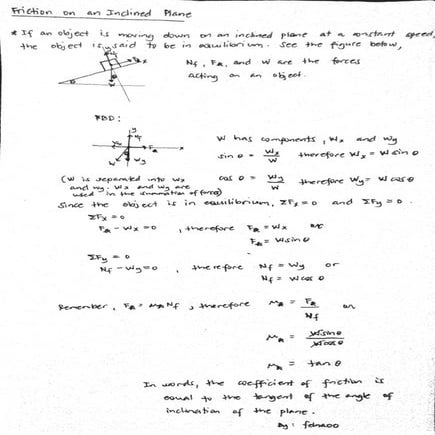 Friction on an Inclined Plane
* If an object is moving down on an inclined plane at a constant speed,
the object is said to be in equilibrium. See the figure below,
Nf, Fk, and W are the forces
acting on an object.
FBD:
y
Nf
Fk
x
Wx
W
Wy
W has components, Wx and Wy
sin θ = Wx/W therefore Wx = W sin θ
(W is separated into Wx
and Wy. Wx and Wy are
used in the summation of forces)
cos θ = Wy/W therefore Wy = W cos θ
Since the object is in equilibrium, ΣFx = 0 and ΣFy = 0.
ΣFx = 0
Fk - Wx = 0 , therefore Fk = Wx or
Fk = W sin θ
ΣFy = 0
Nf - Wy = 0 , therefore Nf = Wy or
Nf = W cos θ
Remember, Fk = μk Nf , therefore μk = Fk/Nf or
μk = W sin θ/W cos θ
μk = tan θ
In words, the coefficient of friction is
equal to the tangent of the angle of
inclination of the plane.
By: